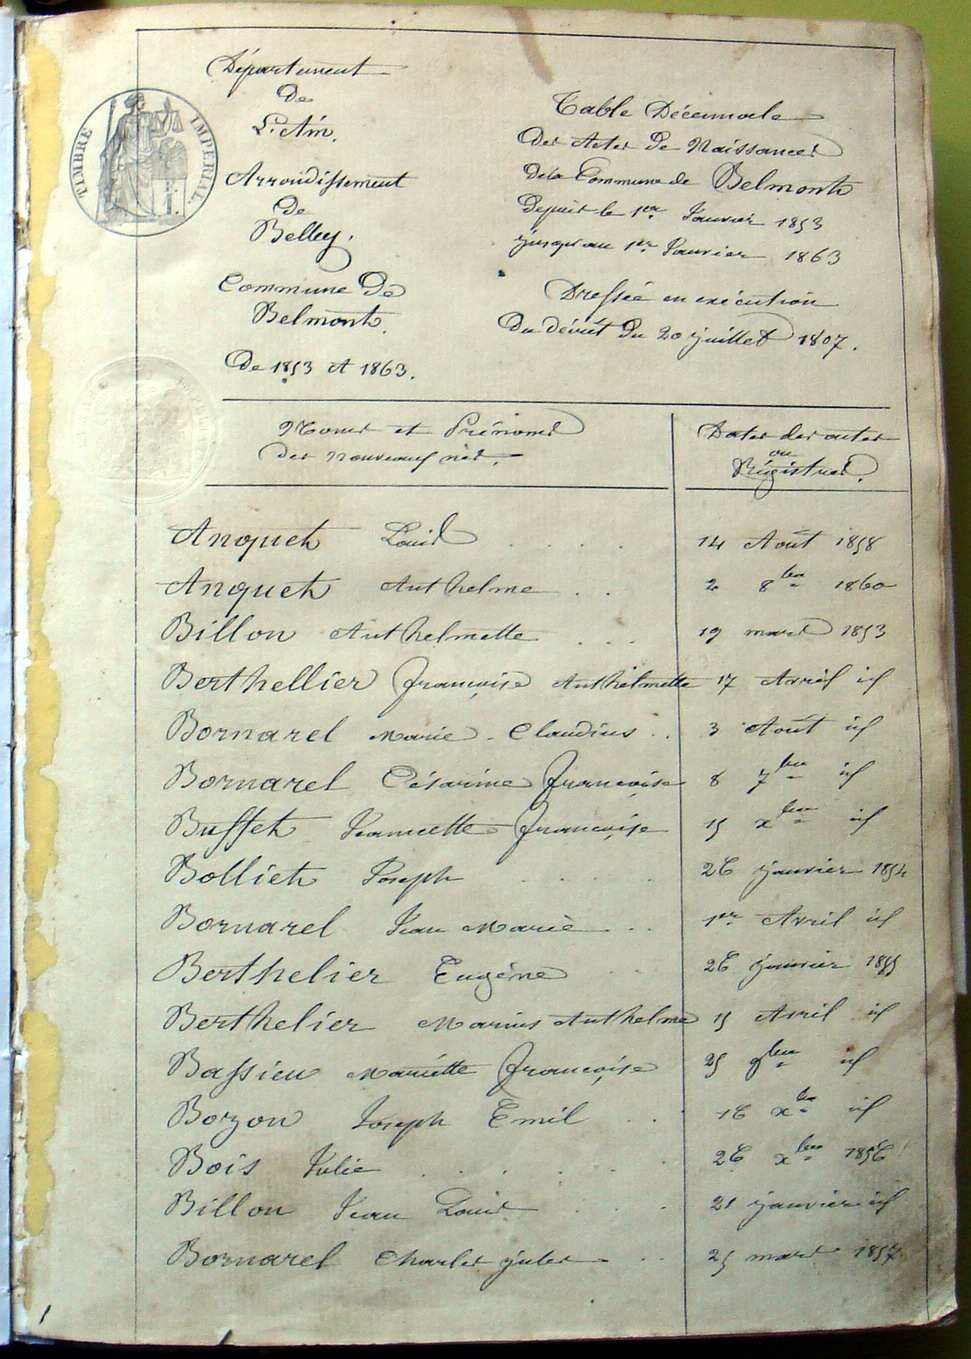 TIMBRE IMPERIAL
Département
de
L'Ain.
Arrondissement
de
Belley.
Commune de
Belmont.
De 1853 et 1863.
Table Décennale
Des Actes de Naissances
de la Commune de Belmont
Depuis le 1er Janvier 1853
jusqu'au 1er Janvier 1863
Dressée en exécution
Du décrêt du 20 juillet 1807.
Noms et Prénoms
des nouveaux nés.
Dates des actes
ou
Régistres.
Anquet Louis . . . . 14 Août 1858
Anquet Anthelme . . 2 8bre 1860
Billon Anthelmette . . . 19 mars 1853
Berthellier françoise Anthelmette 17 Avril id
Bornarel Marie - Claudius . . 3 Août id
Bornarel Césarine françoise 8 7bre id
Buffet Jeannette françoise 15 xbre id
Bolliet Joseph . . . . 26 janvier 1854
Bornarel Jean Marie . . 1er Avril id
Berthelier Eugène . . 26 janvier 1855
Berthelier Marius Anthelme 15 Avril id
Bassieu Mariette françoise 25 9bre id
Bozon Joseph Emil . . 16 xbre id
Bois Julie . . . . . . 26 xbre 1856
Billon Jean Louis . . . 21 janvier id
Bornarel Charles jules . . 25 mars 1857
1